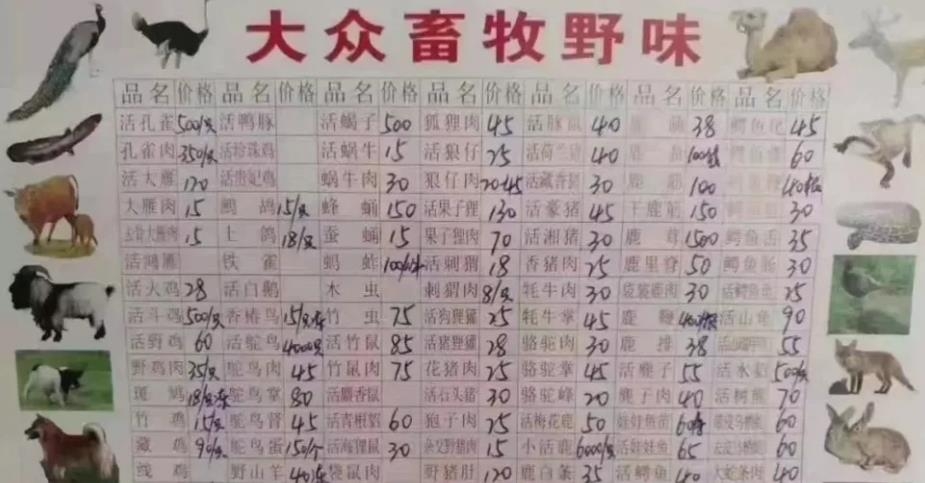 大众畜牧野味
品名 价格 品名 价格 品名 价格 品名 价格 品名 价格 品名 价格 品名 价格
活孔雀 500/只 活鸭豚 活蝎子 500 狐狸肉 45 活豚鼠 40 38 鳄鱼尾 45
孔雀肉 350/只 活珍珠鸡 活蜗牛 15 活狼仔 25 活荷兰猪 40 鹿 60
活大雁 120 活贵妃鸡 蜗牛肉 30 狼仔肉 20-45 活藏香猪 30 鹿 筋 100
大雁肉 15 鹧鸪 15/只 蜂蛹 150 活果子狸 130 活豪猪 45 干鹿筋 150 30
大雁肉 15 土鸽 18/只 蚕蛹 15 果子狸肉 70 活湘猪 30 鹿茸 1500 鳄鱼舌 35
活鸿雁 铁雀 蚂蚱 活刺猬 18 香猪肉 25 鹿里脊 50 鳄鱼肠 30
活火鸡 28 活白鹅 木虫 刺猬肉 8/只 牦牛肉 30 袋鼠肉 30 活鳄鱼 25
活斗鸡 500/只 香椿鸟 竹虫 75 活狗狸獾 25 牦牛掌 45 鹿鞭 活山龟 90
活野鸡 60 活鸵鸟 4000只 活竹鼠 85 活猪狸獾 28 骆驼肉 30 鹿排 38 55
野鸡肉 35/只 鸵鸟肉 45 竹鼠肉 75 花猪肉 25 骆驼掌 45 活麂子 55 活水蛭
斑鸠 鸵鸟掌 80 活麝香鼠 活石头猪 30 骆驼峰 20 麂子肉 40 活树熊 70
竹鸡 15/只 鸵鸟胃 45 活青根貂 60 狍子肉 25 活梅花鹿 50 娃娃鱼苗 60
藏鸡 90/只 鸵鸟蛋 150/个 活海狸鼠 30 野猪肉 15 小活鹿 6000/只 活娃娃鱼 65 60
线鸡 野山羊 袋鼠肉 野猪肚 120 鹿白条 35 活鳄鱼 40 40